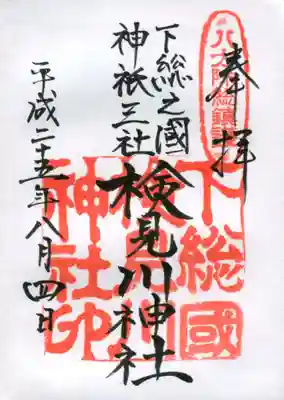 奉拝
下総之國
神祇三社
検見川神社
平成二十五年八月四日
下総國
検見川
神社印